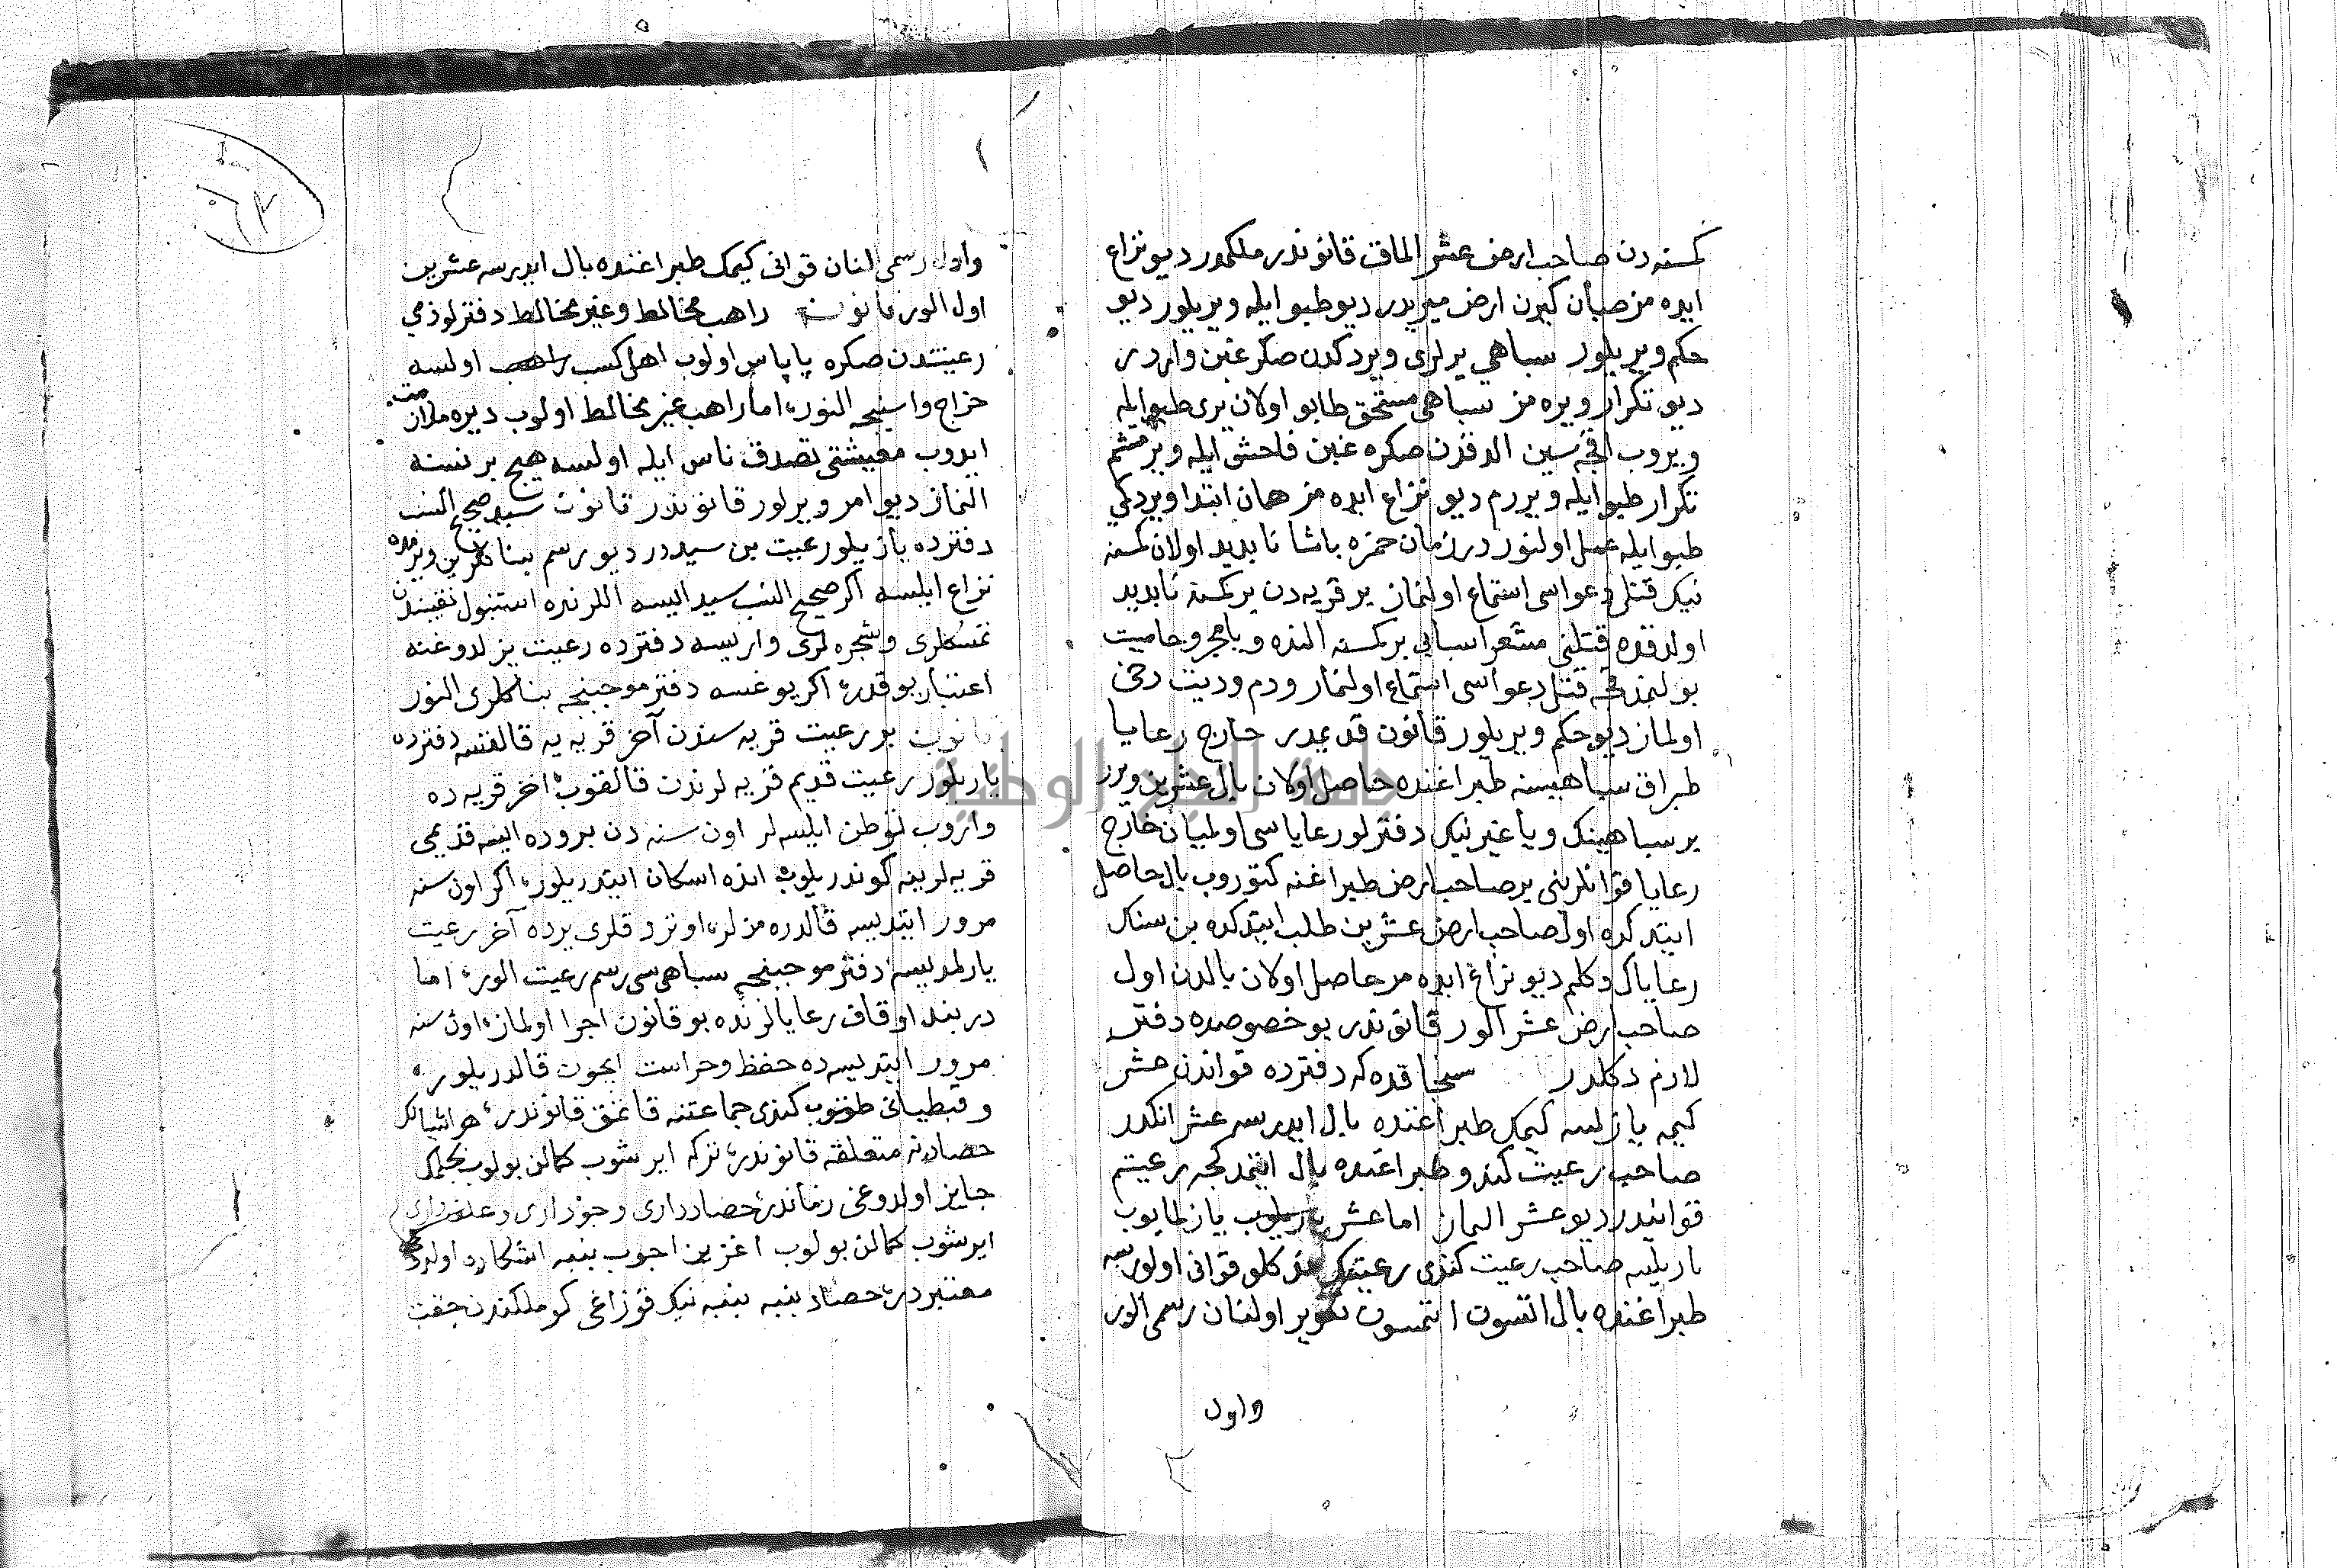 كمسنه دن صاحب ارض عشر الماق قانوندر ملكمدر ديو نزاع
ايده مز صبان كيرن ارض ميريدر ديو طپو ايله ويريلور ديو
حكم ويريلور سپاهي يرلرى ويردكدن صكره غبن واردر
ديو تكرار ويره مز سپاهى مستحق طاپو اولان يرى طپو ايله
ويروب اقچه سين الدقدن صكره غبن فاحش ايله ويرمشم
تكرار طپو ايله ويررم ديو نزاع ايده مز همان ابتدا ويردكي
طپو ايله عمل اولنور در زمان حمزه پاشا نا بديد اولان كمسنه
نيك قتلى دعواسى استماع اولنماز بر قريه دن بر كمسنه نابديد
اولدقده قتلنى مشعر اسبابى بر كمسنه النده ويا مجروحاميت
بولنمدقجه قتل دعواسى استماع اولنماز ودم وديت دخى
اولماز ديو حكم ويريلور قانون قديمدر خارج رعايا
طپراق سپاهيسنه طپراغنده حاصل اولان بال عشرين ويرر
بر سپاهينك ويا غيرنيك دفترلو رعاياسى اولميان خارج
رعايا قوانلرينى بر صاحب ارض طپراغنه كتوروب بال حاصل
ايتدكده اول صاحب ارض عشرين طلب ايتدكده بن سنك
رعاياك دكلم ديو نزاع ايده مز حاصل اولان بالدن اول
صاحب ارض عشر الور قانوندر بو خصوصده دفتر
لازم دكلدر سنجاقده كه دفترده قواندن عشر
كيمه يازلسه كيمك طپراغنده بال ايدرسه عشر انكدر
صاحب رعيت كندو طپراغنده بال ايتمدكجه رعيتم
قوانيدر ديو عشر الماز اما عشر يازيلوب يازلمايوب
يازيلسه صاحب رعيت كندى رعيتنك قوانى اولورسه
طپراغنده بال اتسون اتمسون تقرير اولنان رسمى الور
واول
واول رسمى النان قوانى كيمك طپراغنده بال ايدرسه عشرين
اول الور قانون راهب مخالط وغير مخالط دفترلو ذمي
رعيتدن صكره پاپاس اولوب اهل كسب راهب اولسه
خراج واسپنجه النور اما راهب غير مخالط اولوب ديره ملازمت
ايدوب معيشتى تصدق ناس ايله اولسه هيچ بر نسنه
النماز ديو امر ويرلور قانوندر قانون سيد صحيح النسب
دفترده يازيلور رعيت بن سيدم ديو رسم ويرمده
نزاع ايلسه اكر صحيح النسب سيد ايسه اللرنده استنبول نقيبندن
تمسكلرى وشجره لرى وار ايسه دفترده رعيت يزلدوغنه
اعتبار يوقدر اكر يوغسه دفتر موجبنجه النور
قانون بر رعيت قريه سندن آخر قريه يه قالقسه دفترده
يازيلور رعيت قديم قريه لرندن قالقوب اخر قريه ده
واروب توطن ايلسه لر اون سنه دن بروده ايسه قديمى
قريه لرينه كوندريلوب انده اسكان ايتدريلور اكر اون سنه
مرور ايتديسه قالدره مزلر اوتردقلرى يرده آخر رعيت
يازلمديسه دفتر موجبنجه سپاهى سى رسم رعيت الور اما
دربند اوقاف رعايالرنده بو قانون اجرا اولماز اون سنه
مرور ايتديسه ده حفظ وحراست ايچون قالدريلور
وقبطيانى طوتوب كندى جماعتنه قاتمق قانوندر
حصادنه متعلقه قانوندر تركه ايرشوب كمالن بولوب
جايز اولدوغى زماندر حصاد دارى وجو دارى
ايرشوب كمالن بولوب اغزين اچوب پنبه اشكاره اولدوغى
معتبردر حصاد پنبه پنبه نيك قوزاغى كوملكندن چقت